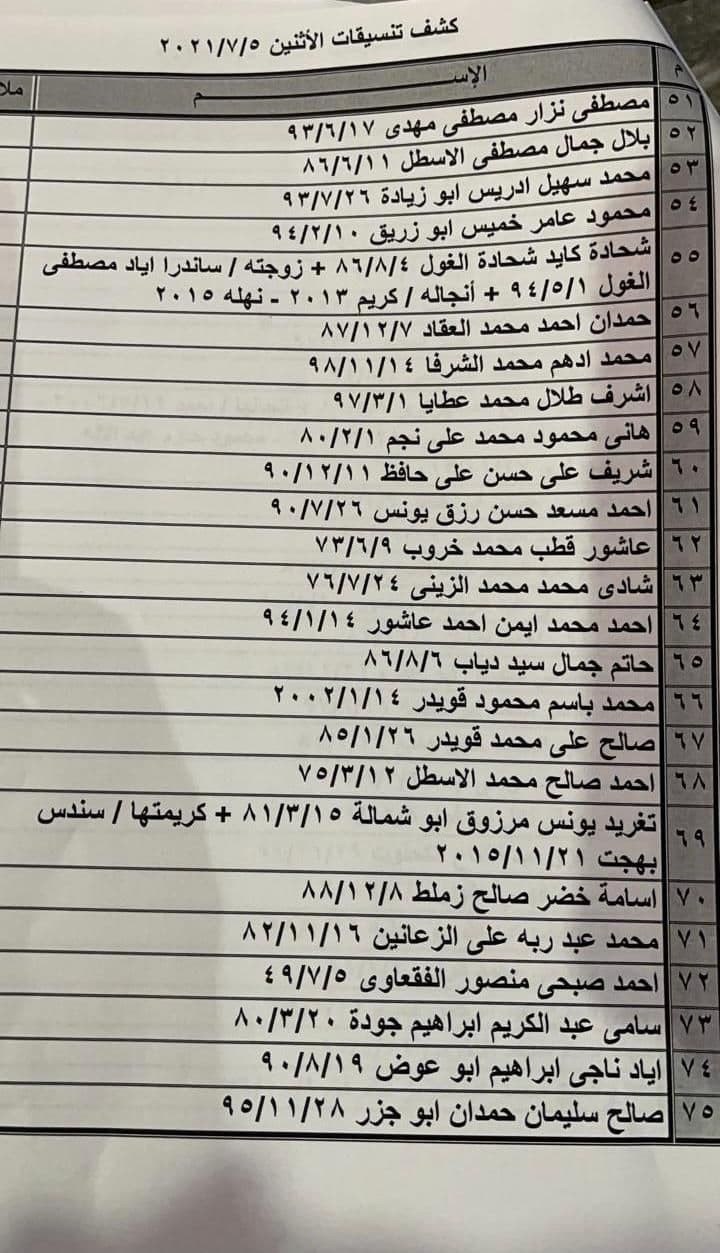 كشف تنسيقات الأثنين ٢٠٢١/٧/٥
م الإســـــــم ملا
٥١ مصطفى نزار مصطفى مهدى ٩٣/٦/١٧
٥٢ بلال جمال مصطفى الاسطل ٨٦/٦/١١
٥٣ محمد سهيل ادريس ابو زيادة ٩٣/٧/٢٦
٥٤ محمود عامر خميس ابو زريق ٩٤/٢/١٠
٥٥ شحادة كايد شحادة الغول ٨٦/٨/٤ + زوجته / ساندرا اياد مصطفى
الغول ٩٤/٥/١ + أنجاله / كريم ٢٠١٣ - نهله ٢٠١٥
٥٦ حمدان احمد محمد العقاد ٨٧/١٢/٧
٥٧ محمد ادهم محمد الشرفا ٩٨/١١/١٤
٥٨ اشرف طلال محمد عطايا ٩٧/٣/١
٥٩ هانى محمود محمد على نجم ٨٠/٢/١
٦٠ شريف على حسن على حافظ ٩٠/١٢/١١
٦١ احمد مسعد حسن رزق يونس ٩٠/٧/٢٦
٦٢ عاشور قطب محمد خروب ٧٣/٦/٩
٦٣ شادى محمد محمد الزينى ٧٦/٧/٢٤
٦٤ احمد محمد ايمن احمد عاشور ٩٤/١/١٤
٦٥ حاتم جمال سيد دياب ٨٦/٨/٦
٦٦ محمد باسم محمود قويدر ٢٠٠٢/١/١٤
٦٧ صالح على محمد قويدر ٨٥/١/٢٦
٦٨ احمد صالح محمد الاسطل ٧٥/٣/١٢
٦٩ تغريد يونس مرزوق ابو شمالة ٨١/٣/١٥ + كريمتها / سندس
بهجت ٢٠١٥/١١/٢١
٧٠ اسامة خضر صالح زملط ٨٨/١٢/٨
٧١ محمد عبد ربه على الزعانين ٨٢/١١/١٦
٧٢ احمد صبحى منصور الفقعاوى ٤٩/٧/٥
٧٣ سامى عبد الكريم ابراهيم جودة ٨٠/٣/٢٠
٧٤ اياد ناجى ابراهيم ابو عوض ٩٠/٨/١٩
٧٥ صالح سليمان حمدان ابو جزر ٩٥/١١/٢٨